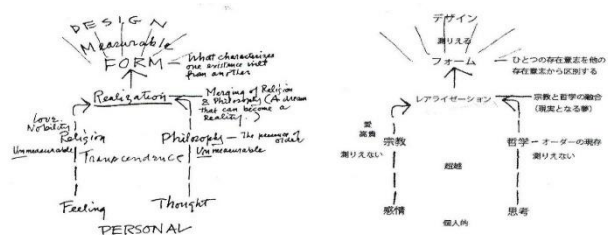 DESIGN
Measurable
FORM — What characterizes
one existence will
from another
Realization — Merging of Religion
& Philosophy (A dream
that can become a
Reality.)
Love
Nobility
Religion
Unmeasurable
Philosophy — The presence of
order
Unmeasurable
Transcendence
Feeling
Thought
PERSONAL
デザイン
測りえる
フォーム
ひとつの存在意志を他の
存在意志から区別する
レアライゼーション
宗教と哲学の融合
(現実となる夢)
愛
高貴
宗教
測りえない
哲学
オーダーの現存
測りえない
超越
感情
思考
個人的